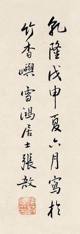 乾隆戊申夏六月寫於
竹香嶼雪鴻居士張敔